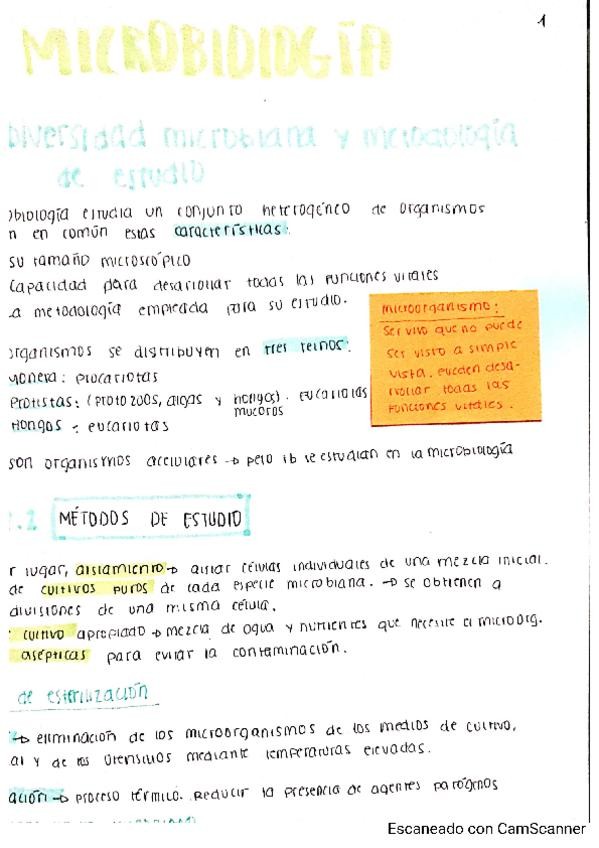 1
MICROBIOLOGÍA
Diversidad microbiana y metodología
de estudio
obiología estudia un conjunto heterogéneo de organismos
n en común estas características:
su tamaño microscópico
Capacidad para desarrollar todas las funciones vitales
La metodología empleada para su estudio.
microorganismo:
Ser vivo que no puede
ser visto a simple
vista. pueden desa-
rrollar todas las
funciones vitales.
organismos se distribuyen en tres reinos:
Monera: procariotas
Protistas: (protozoos, algas y hongos). eucariotas
mucoros
Hongos: eucariotas
son organismos acelulares → pero tb se estudian en la microbiología
1.1 MÉTODOS DE ESTUDIO
r lugar, aislamiento → aislar células individuales de una mezcla inicial.
de cultivos puros de cada especie microbiana. → se obtienen a
divisiones de una misma célula.
: cultivo apropiado → mezcla de agua y nutrientes que necesite el microorg.
asépticas para evitar la contaminación.
de esterilización
→ eliminación de los microorganismos de los medios de cultivo,
al y de los utensilios mediante temperaturas elevadas.
ación → proceso térmico. Reducir la presencia de agentes patógenos
Escaneado con CamScanner